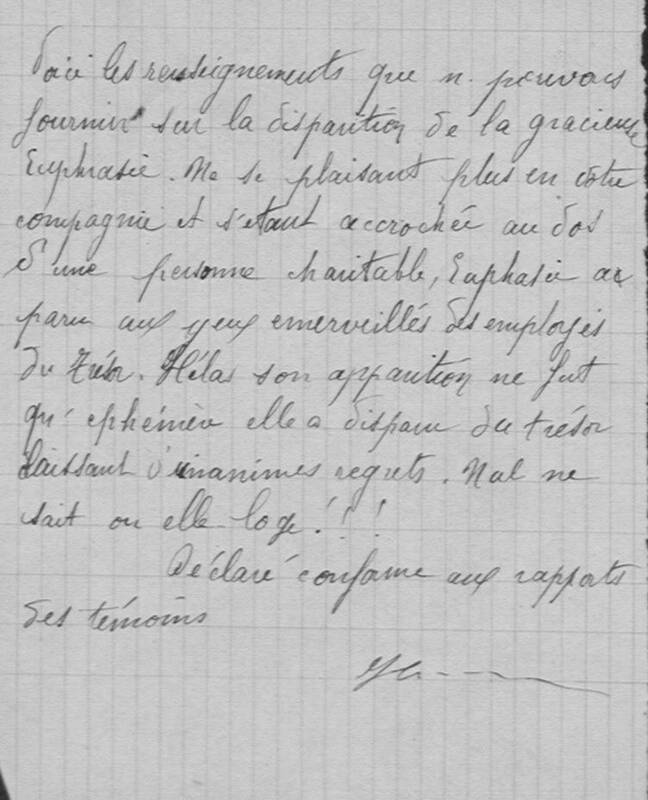 Voici les renseignements que n. pouvons
fournir sur la disparition de la gracieuse
Euphrasie. Ne se plaisant plus en votre
compagnie et s'étant accrochée au dos
d'une personne charitable, Euphasie a
paru aux yeux emerveillés des employés
du Trésor. Hélas son apparition ne fut
qu'ephémère elle a disparu du trésor
laissant d'unanimes regrets. Nul ne
sait ou elle loge!!!
Déclaré conforme aux rapports
des témoins